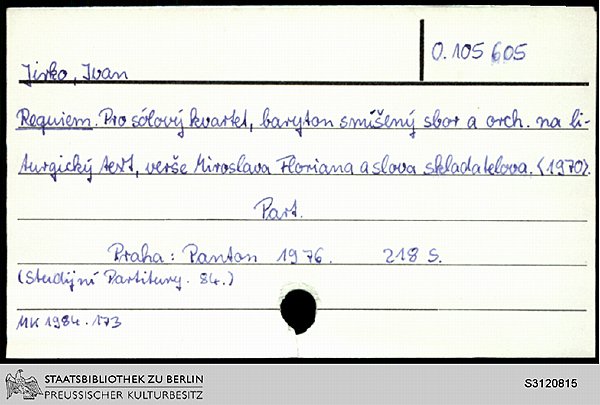 O. 105 605
Jirko, Ivan
Requiem. Pro sólový kvartet, baryton smíšený sbor a orch. na li-
turgický text, verše Miroslava Floriana a slova skladatelova. <1970>.
Part.
Praha: Panton 1976. 218 S.
(Studijní Partitury. 84.)
MK 1984. 173
STAATSBIBLIOTHEK ZU BERLIN
PREUSSISCHER KULTURBESITZ
S3120815